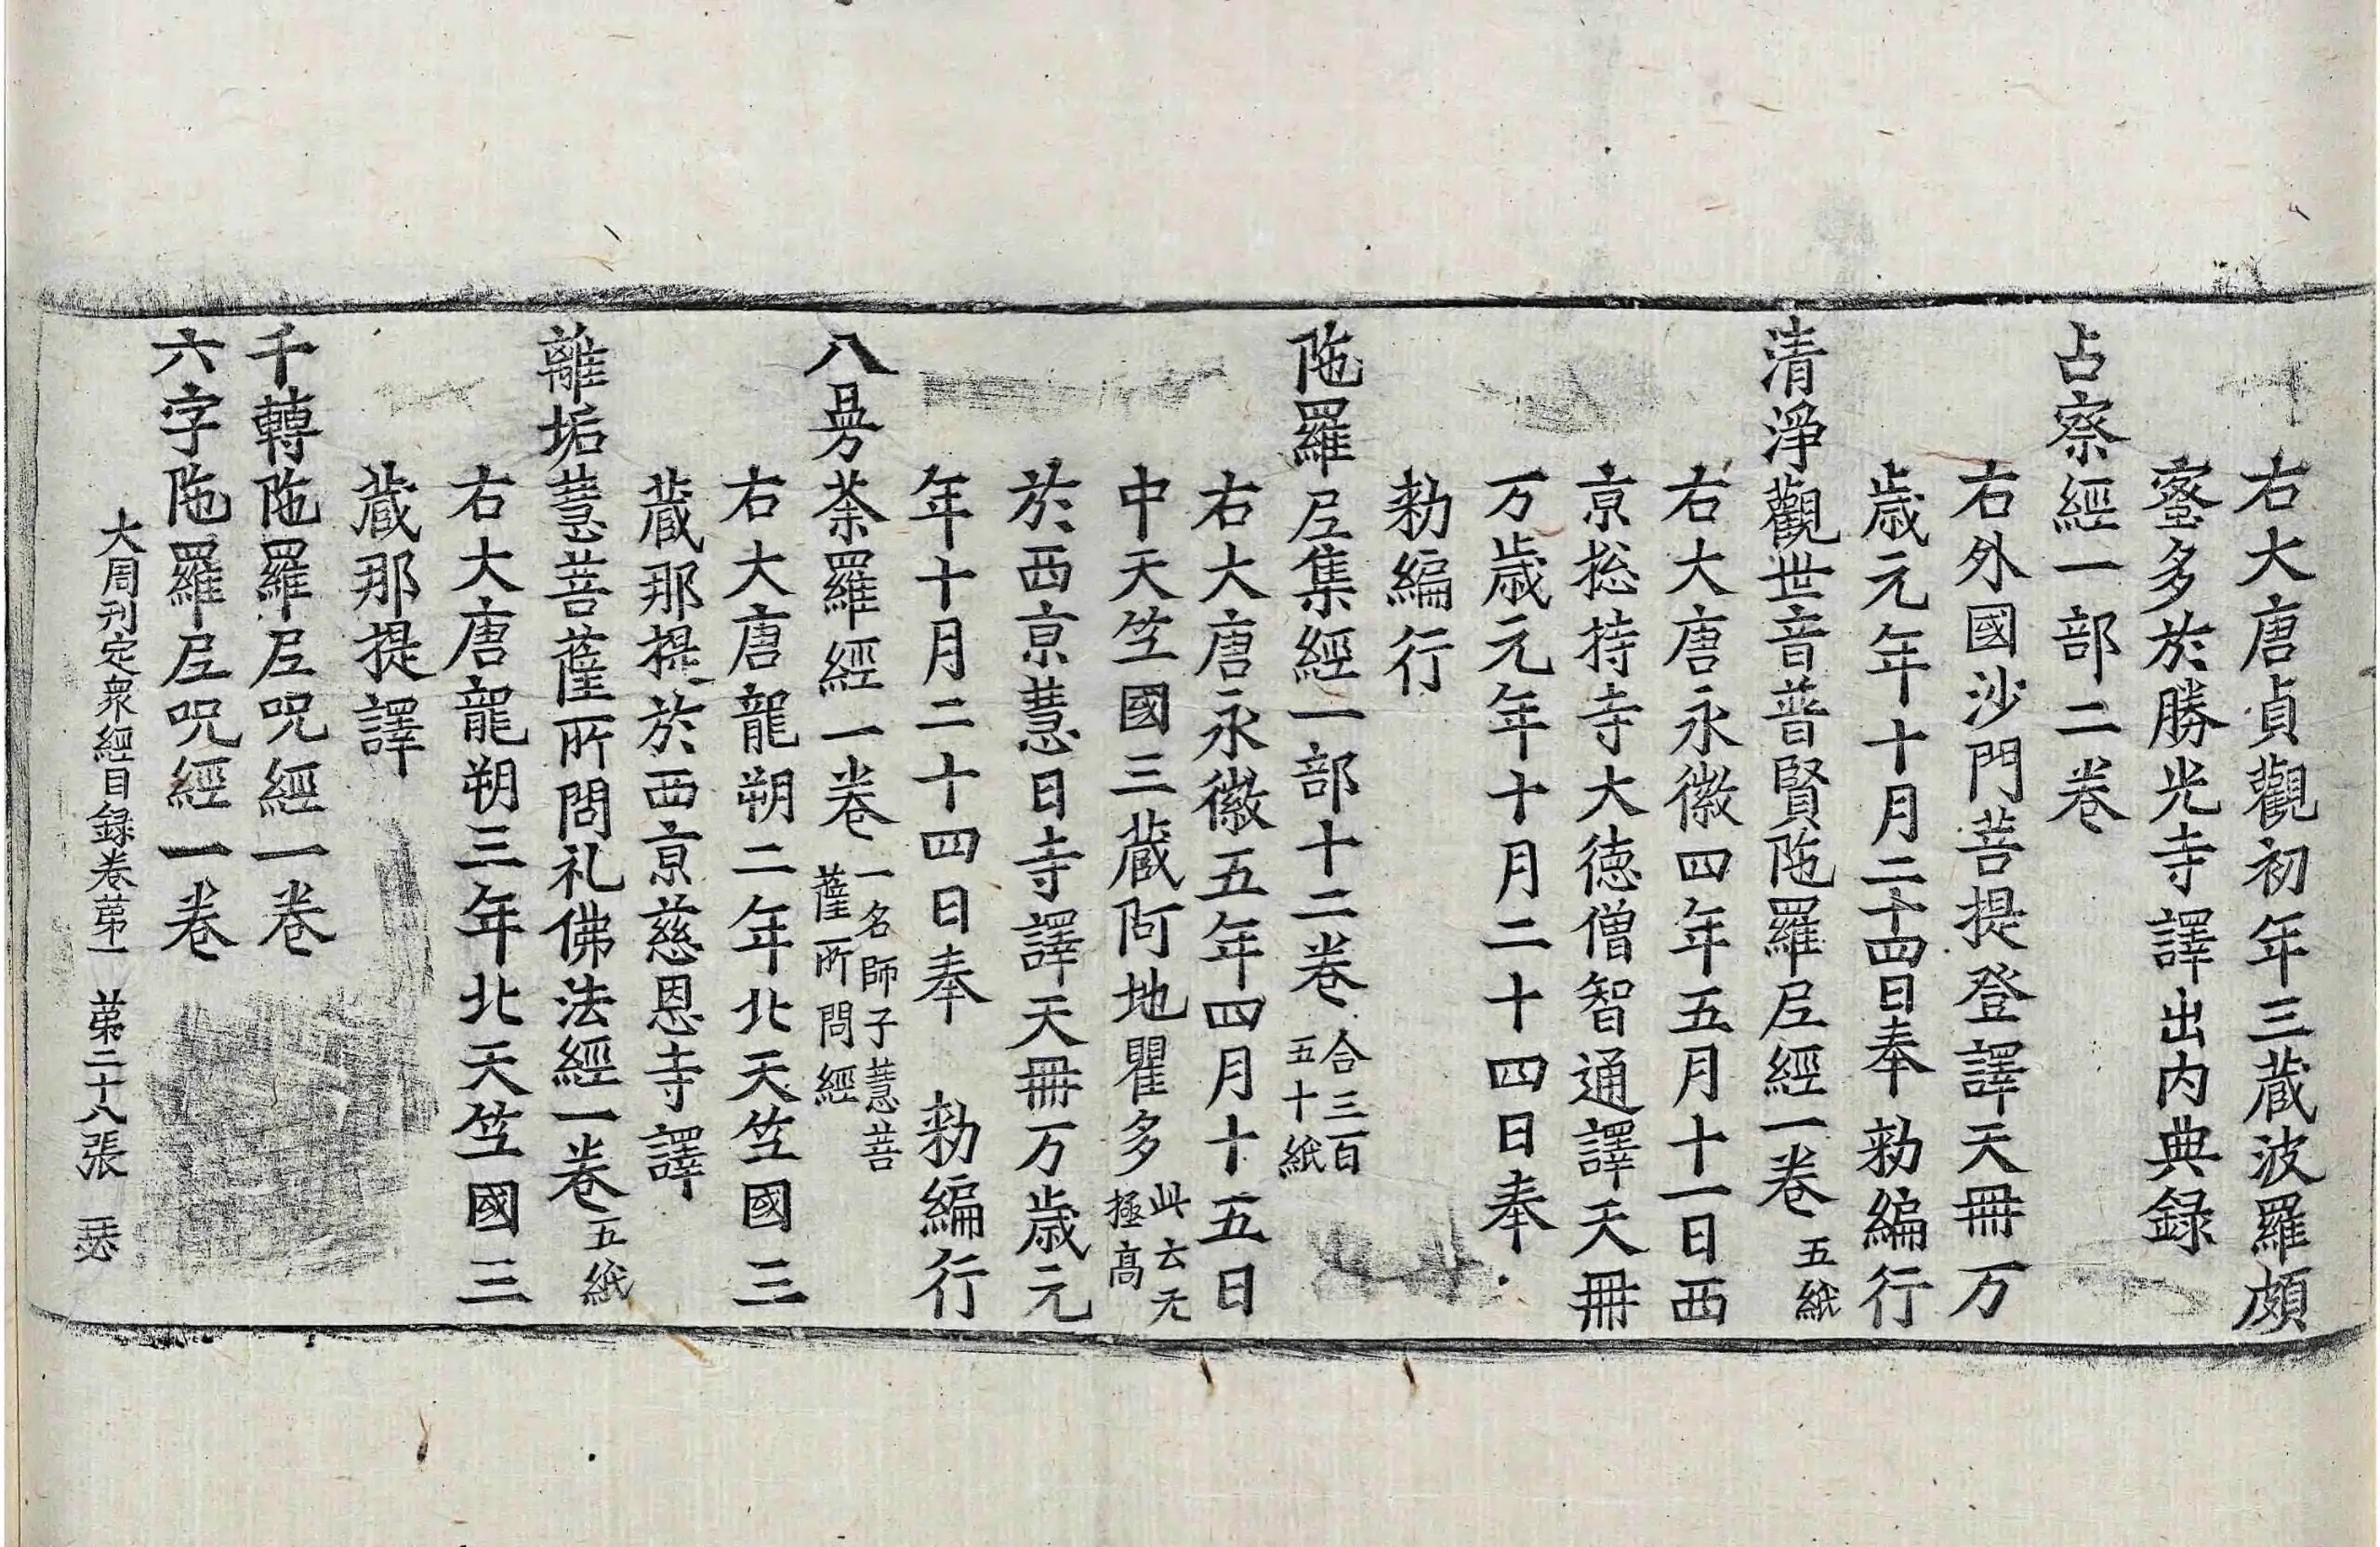 右大唐貞觀初年三蔵波羅頗
蜜多於勝光寺譯出内典録
占察經一部二卷
右外國沙門菩提登譯天冊万
歳元年十月二十四日奉勑編行
清淨觀世音普賢陁羅尼經一卷五紙
右大唐永徽四年五月十一日西
京捴持寺大徳僧智通譯天冊
万歳元年十月二十四日奉
勑編行
陁羅尼集經一部十二卷合三百五十紙
右大唐永徽五年四月十五日
中天竺國三蔵阿地瞿多此云无極高
於西京慧日寺譯天冊万歳元
年十月二十四日奉 勑編行
八曼荼羅經一卷一名師子慧菩薩所問經
右大唐龍朔二年北天竺國三
蔵那提於西京慈恩寺譯
離垢慧菩薩所問礼佛法經一卷五紙
右大唐龍朔三年北天竺國三
蔵那提譯
千轉陁羅尼呪經一卷
六字陁羅尼呪經一卷
大周刊定衆經目録卷第一 第二十八張 瑟